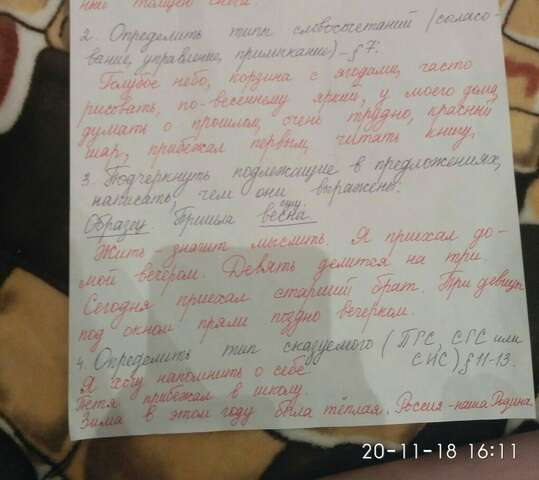 ный толщею снега.
2. Определить типы словосочетаний (согласо-
вание, управление, примыкание) – § 7:
Голубое небо, корзина с ягодами, часто
рисовать, по-весеннему яркий, у моего дома,
думать о прошлом, очень трудно, красный
шар, прибежал первым, читать книгу.
3. Подчеркнуть подлежащие в предложениях,
написать, чем они выражены.
сущ.
Образец. Пришла весна.
Жить значит мыслить. Я приехал до-
мой вечером. Девять делится на три.
Сегодня приехал старший брат. Три девицы
под окном пряли поздно вечерком.
4. Определить тип сказуемого (ПГС, СГС или
СИС) § 11-13.
Я хочу напомнить о себе.
Петя прибежал в школу.
Зима в этом году была тёплая. Россия – наша Родина.
20-11-18 16:11